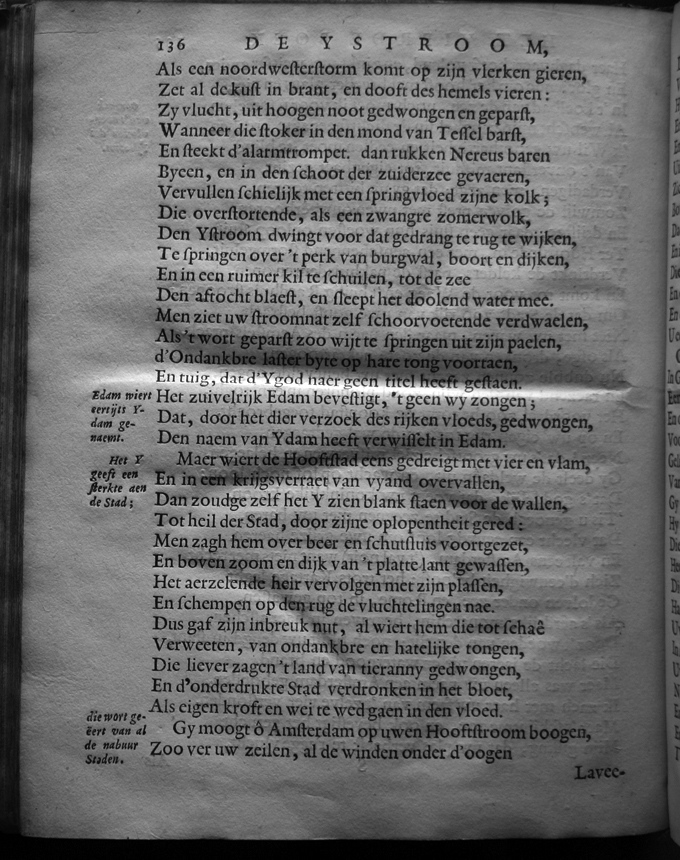 136 DE YSTROOM,
Als een noordwesterstorm komt op zijn vlerken gieren,
Zet al de kust in brant, en dooft des hemels vieren:
Zy vlucht, uit hoogen noot gedwongen en geparst,
Wanneer die stoker in den mond van Tessel barst,
En steekt d'alarmtrompet. dan rukken Nereus baren
Byeen, en in den schoot der zuiderzee gevaeren,
Vervullen schielijk met een springvloed zijne kolk;
Die overstortende, als een zwangre zomerwolk,
Den Ystroom dwingt voor dat gedrang te rug te wijken,
Te springen over 't perk van burgwal, boort en dijken,
En in een ruimer kil te schuilen, tot de zee
Den aftocht blaest, en sleept het doolend water mee.
Men ziet uw stroomnat zelf schoorvoetende verdwaelen,
Als 't wort geparst zoo wijt te springen uit zijn paelen,
d'Ondankbre laster byte op hare tong voortaen,
En tuig, dat d'Ygod naer geen titel heeft gestaen.
Edam wiert eertijts Y-dam ge-naemt.
Het zuivelrijk Edam bevestigt, 't geen wy zongen;
Dat, door het dier verzoek des rijken vloeds, gedwongen,
Den naem van Ydam heeft verwisselt in Edam.
Het Y geeft een sterkte aen de Stad;
Maer wiert de Hooftstad eens gedreigt met vier en vlam,
En in een krijgsverraet van vyand overvallen,
Dan zoudge zelf het Y zien blank staen voor de wallen,
Tot heil der Stad, door zijne oplopentheit gered:
Men zagh hem over beer en schutsluis voortgezet,
En boven zoom en dijk van 't platte lant gewassen,
Het aerzelende heir vervolgen met zijn plassen,
En schempen op den rug de vluchtelingen nae.
Dus gaf zijn inbreuk nut, al wiert hem die tot schaê
Verweeten, van ondankbre en hatelijke tongen,
Die liever zagen 't land van tieranny gedwongen,
En d'onderdrukte Stad verdronken in het bloet,
Als eigen kroft en wei te wed gaen in den vloed.
die wort ge-ëert van al de nabuur Steden.
Gy moogt ô Amsterdam op uwen Hooftstroom boogen,
Zoo ver uw zeilen, al de winden onder d'oogen
Lavee-